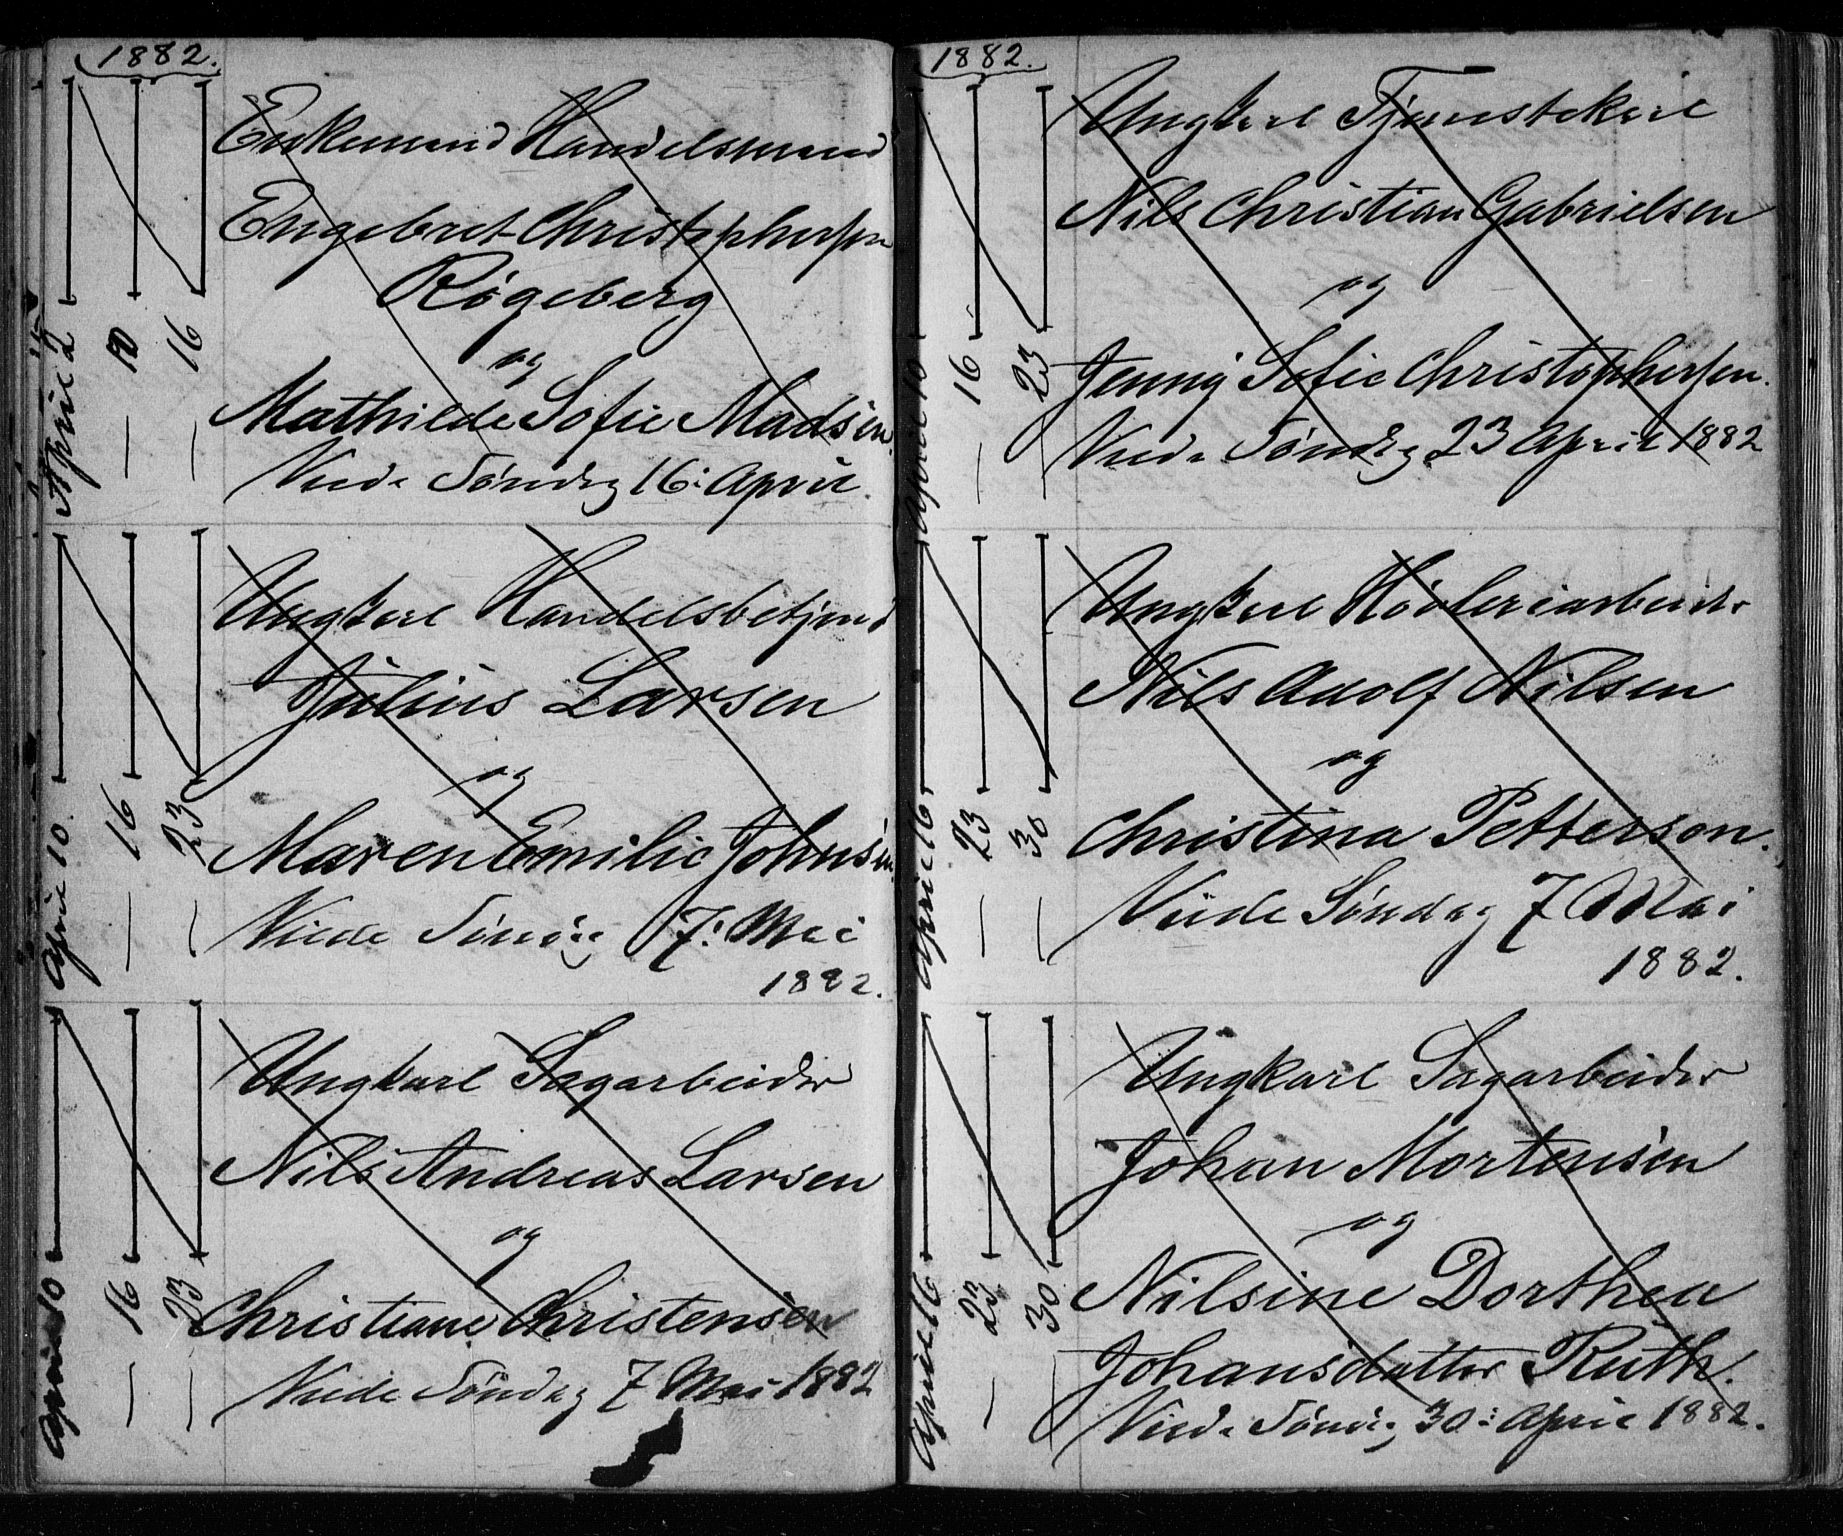 1882.
April 2
10
16
Enkemand Handelsmand
Engebret Christophersen
Røgeberg
og
Mathilde Sofie Madsen.
Viede Søndag 16: April.
April 10.
16
23
Ungkarl Handelsbetjent
Julius Larsen
og
Maren Emilie Johnsen.
Viede Søndag 7: Mai
1882.
April 10
16
23
Ungkarl Sagarbeider
Nils Andreas Larsen
og
Christiane Christensen
Viede Søndag 7 Mai 1882
1882.
April 10
16
23
Ungkarl Tjenestekarl
Nils Christian Gabrielsen
og
Jenny Sofie Christophersen.
Viede Søndag 23 April 1882
April 16
23
30
Ungkarl Høvleriarbeider
Nils Adolf Nilsen
og
Christina Petterson.
Viede Søndag 7 Mai
1882.
April 16
23
30
Ungkarl Sagarbeider
Johan Mortensen
og
Nilsine Dorthea
Johansdatter Ruth.
Viede Søndag 30: April 1882.